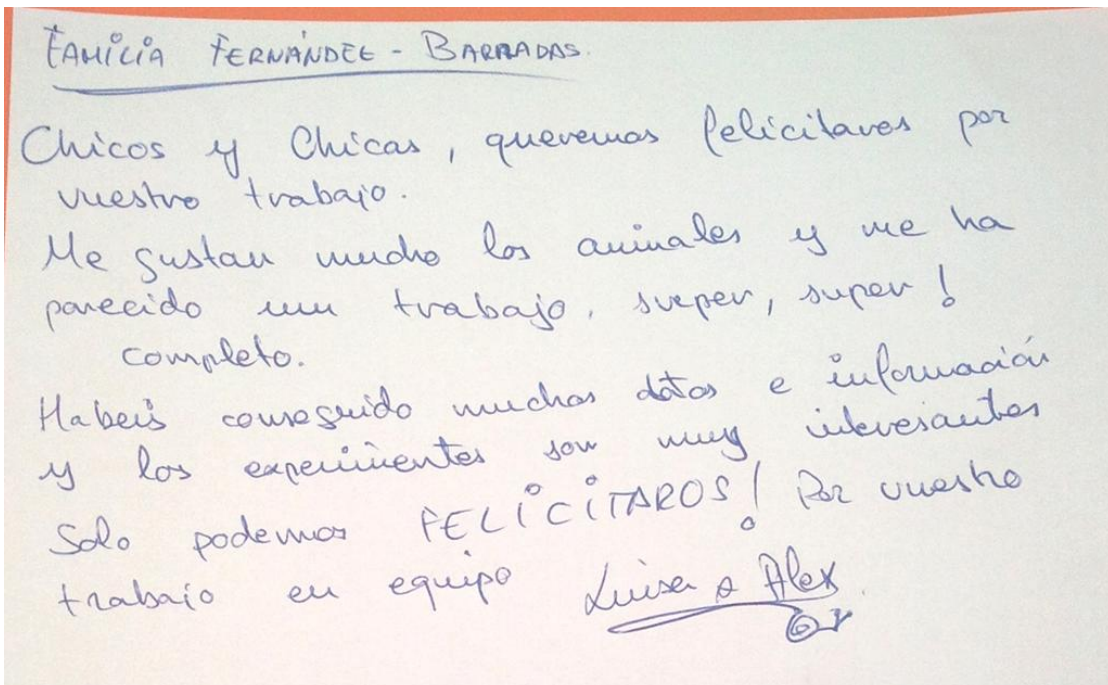 FAMILIA FERNÁNDEZ - BARRADAS.
Chicos y Chicas, queremos felicitaros por
vuestro trabajo.
Me gustan mucho los animales y me ha
parecido un trabajo, super, super!
completo.
Habeis conseguido muchos datos e información
y los experimentos son muy interesantes
Solo podemos FELICITAROS! Por vuestro
trabajo en equipo Luisa a Alex